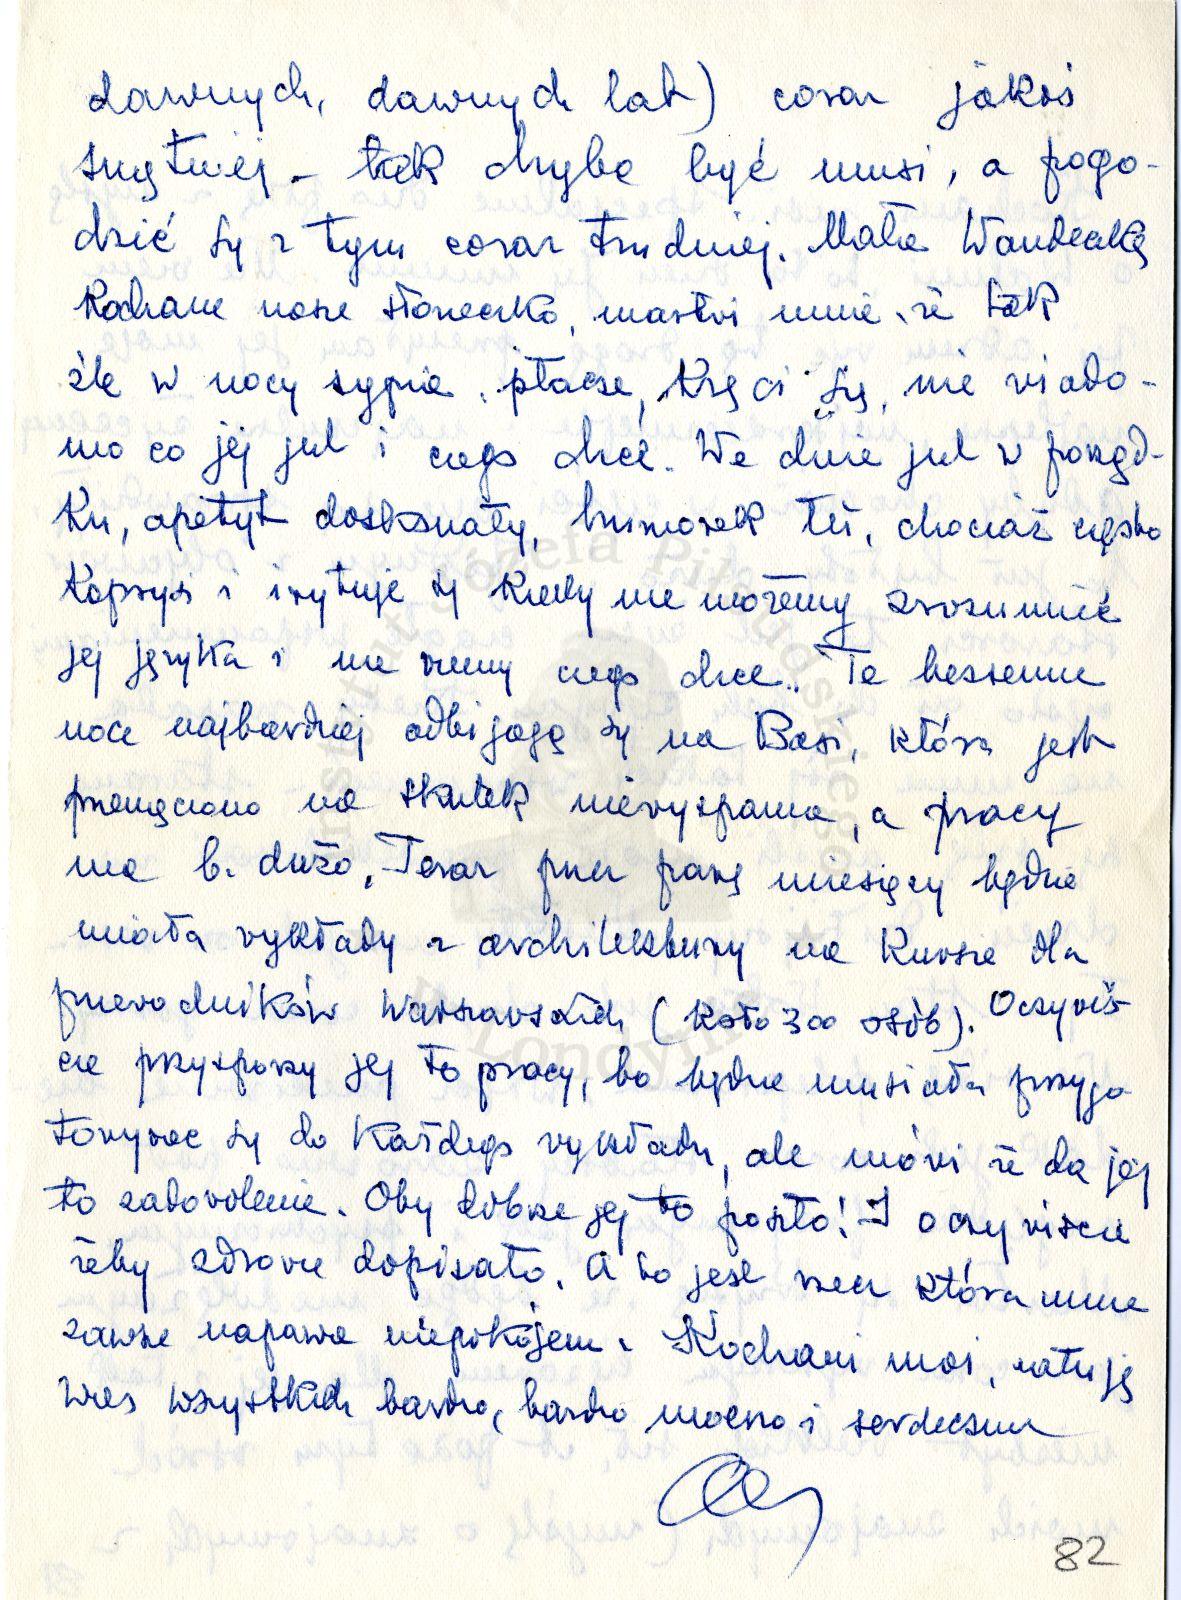 dawnych, dawnych lat) coraz jakoś
smętniej – tak chyba być musi, a pogo-
dzić się z tym coraz trudniej. Mała Wandeczka
kochane nasze słoneczko, martwi mnie, że tak
źle w nocy sypia, płacze, kręci się, nie wiado-
mo co jej jest i czego chce. We dnie jest w porząd-
ku, apetyt doskonały, humorek też, chociaż często
kaprysi i irytuje się kiedy nie możemy zrozumieć
jej języka i nie wiemy czego chce. Te bezsenne
noce najbardziej odbijają się na Basi, która jest
przemęczona na skutek niewyspania, a pracy
ma b. dużo. Teraz przez parę miesięcy będzie
miała wykłady z architektury na kursie dla
przewodników Warszawskich (koło 300 osób). Oczywiś
cie przysporzy jej to pracy, bo będzie musiała przygo
towywać się do każdego wykładu, ale mówi że da jej
to zadowolenie. Oby dobrze jej to poszło! I oczywiście
żeby zdrowie dopisało. A to jest rzecz która mnie
zawsze napawa niepokojem. Kochani moi, całuję
Was wszystkich bardzo, bardzo mocno i serdecznie
82
Instytut Józefa Piłsudskiego
w Londynie